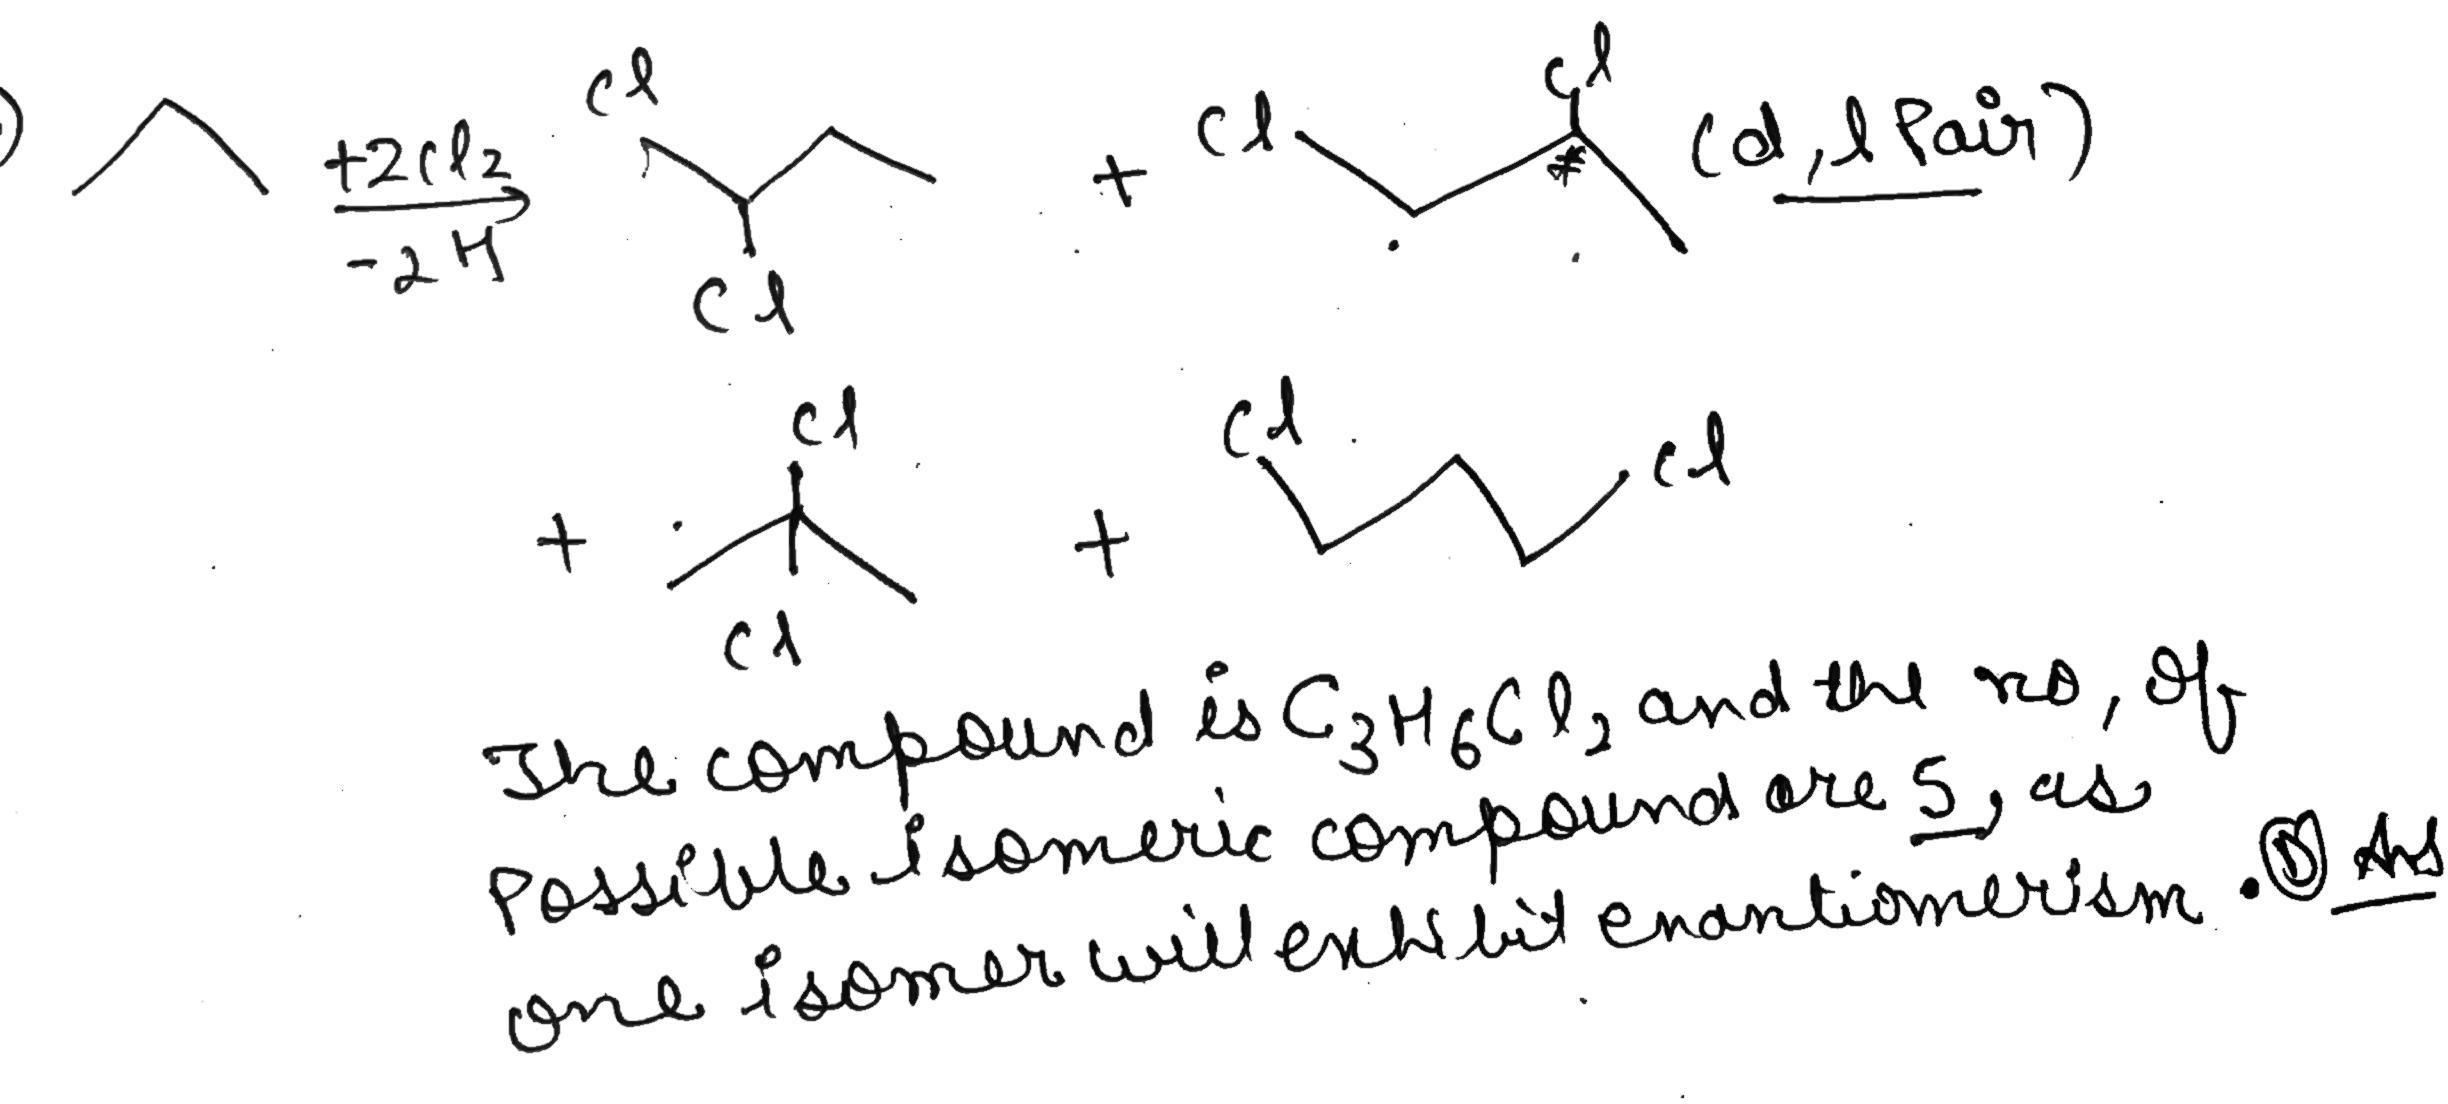 )
+2Cl2
-2H
Cl
Cl
+
Cl
Cl
*
(d, l Pair)
+
Cl
Cl
+
Cl
Cl
The compound is C3H6Cl2 and the no, of
Possible isomeric compound are 5, as
one isomer will exhibit enantiomerism. D Ans